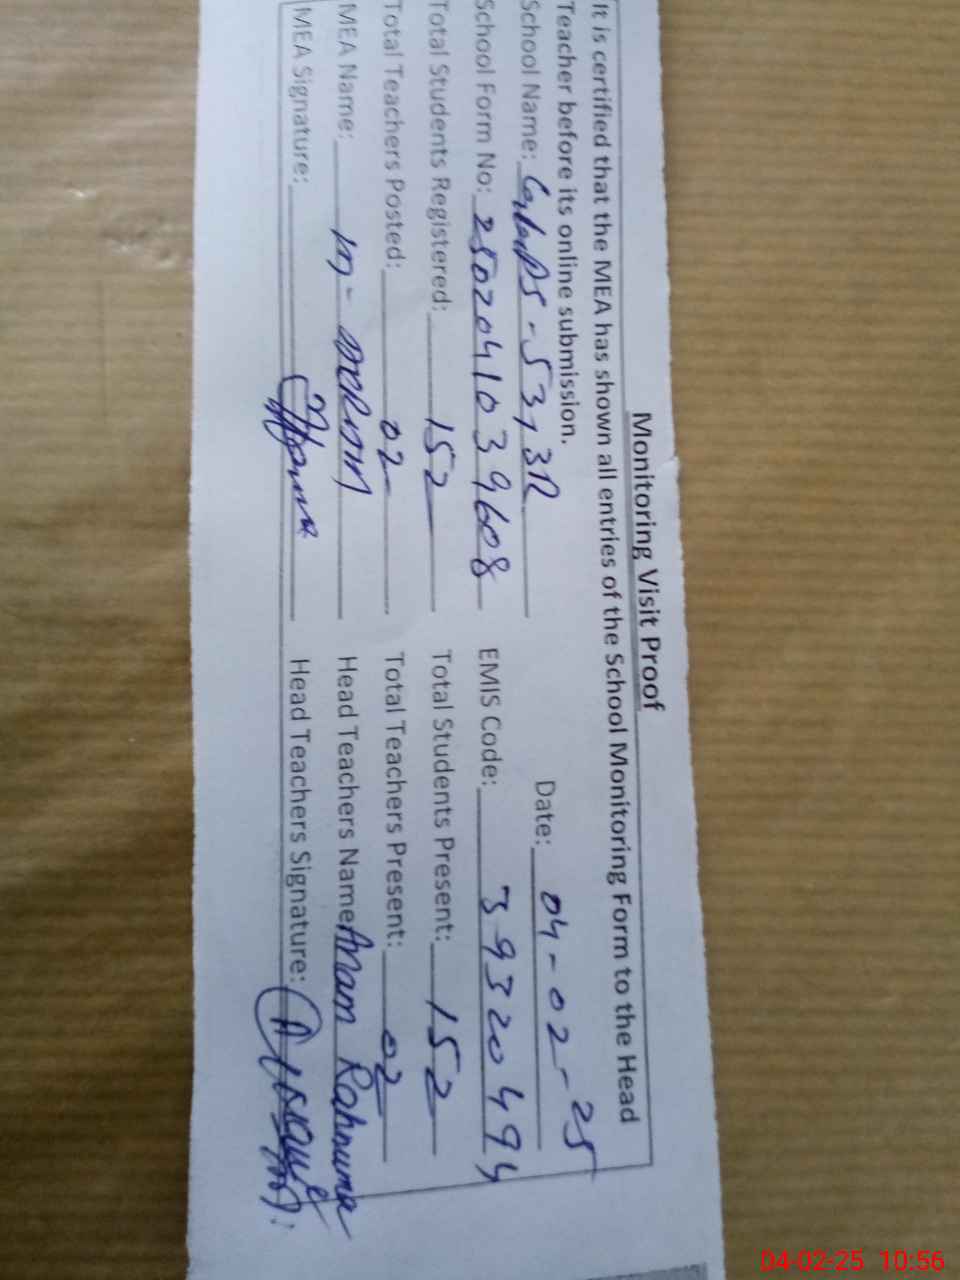 Monitoring Visit Proof
It is certified that the MEA has shown all entries of the School Monitoring Form to the Head
Teacher before its online submission.
Date: 04-02-25
School Name: - 53, 3R
School Form No: 2502041039608 EMIS Code: 39320494
Total Students Registered: 152 Total Students Present: 152
Total Teachers Posted: 02 Total Teachers Present: 02
MEA Name: M- Head Teachers Name: Anam Rahnuma
MEA Signature: Head Teachers Signature:
04-02-25 10:56